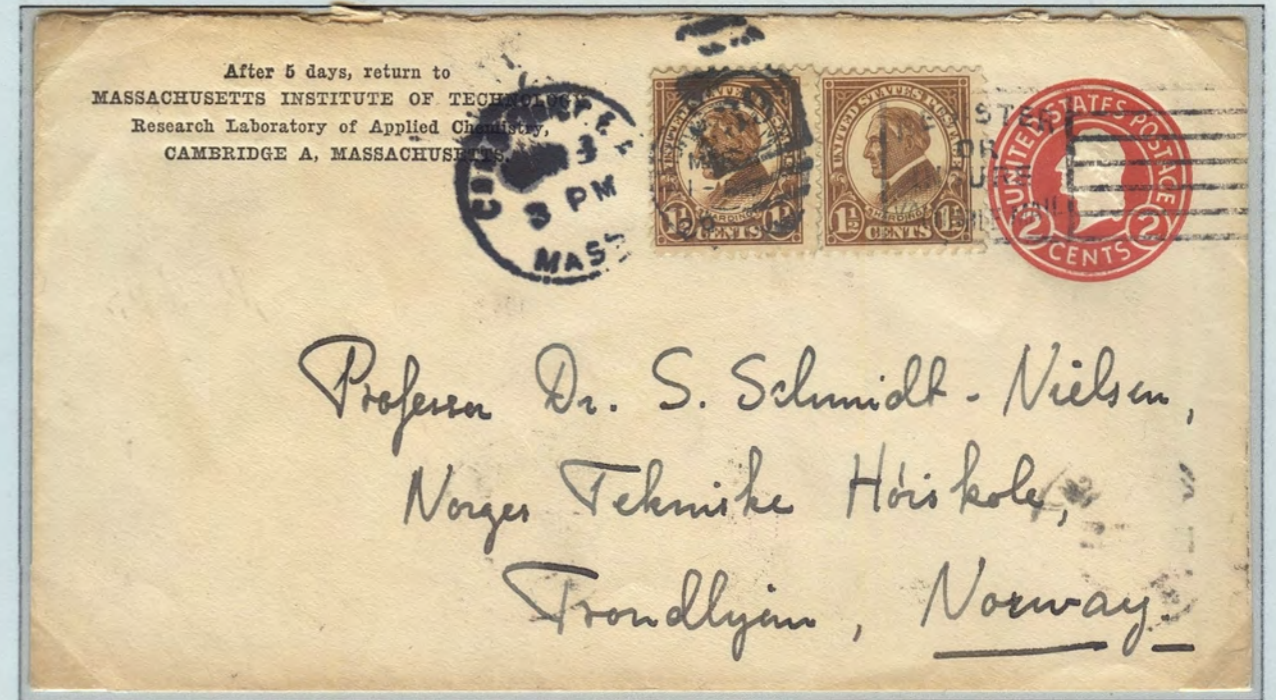 After 5 days, return to
MASSACHUSETTS INSTITUTE OF TECHNOLOGY
Research Laboratory of Applied Chemistry,
CAMBRIDGE A, MASSACHUSETTS.
3
3 PM
MASS
UNITED STATES POSTAGE
HARDING
1½ CENTS 1½
UNITED STATES POSTAGE
HARDING
1½ CENTS 1½
OR
UNITED STATES POSTAGE
2 CENTS 2
Professor Dr. S. Schmidt-Nielsen,
Norges Tekniske Høiskole,
Trondhjem, Norway.